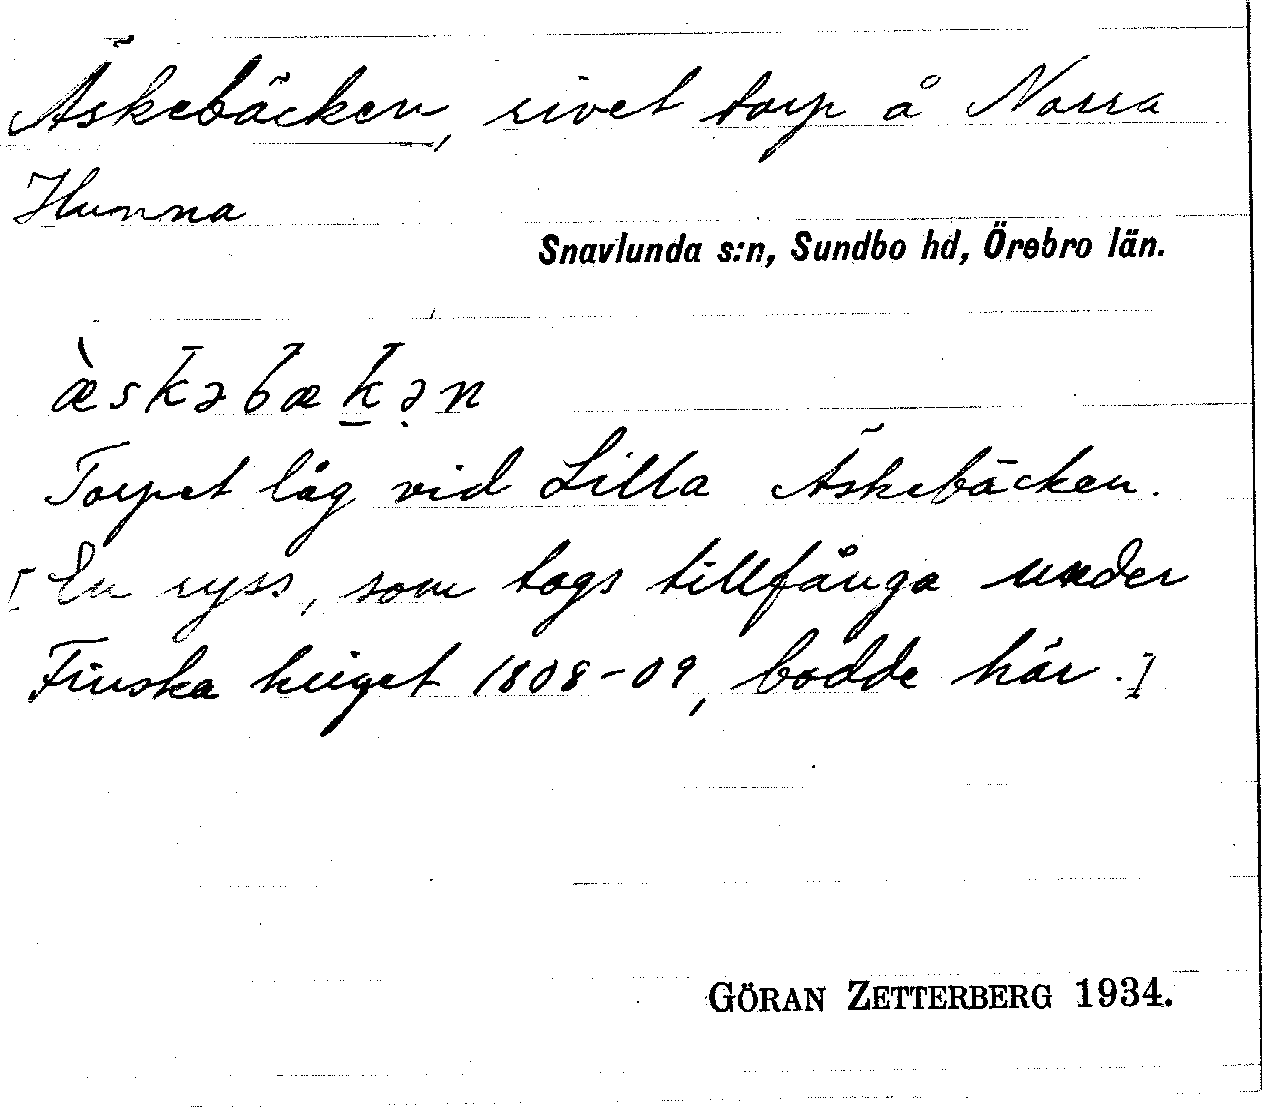 Äskebäcken, rivet torp å Norra
Humna
Snavlunda s:n, Sundbo hd, Örebro län.
æ̀skəbæk̠ə̣n
Torpet låg vid Lilla Äskebäcken.
[En ryss, som togs tillfånga under
Finska kriget 1808-09, bodde här.]
GÖRAN ZETTERBERG 1934.